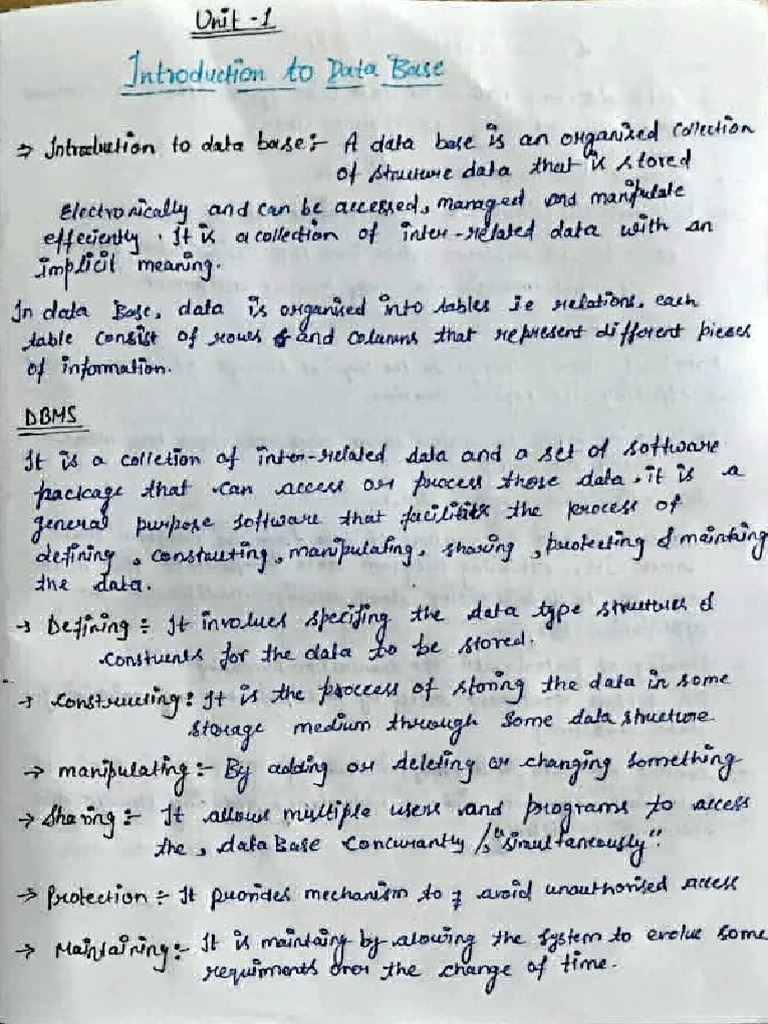 Unit - 1
Introduction to Data Base
⇒ Introduction to data base :- A data base is an organized collection
of structure data that is stored
Electronically and can be accessed, managed and manipulate
effeciently. It is a collection of inter-related data with an
implicit meaning.
In data Base, data is organised into tables ie relations, each
table consist of rows and columns that represent different pieces
of information.
DBMS
It is a colletion of inter-related data and a set of software
package that can access or process those data. it is a
general purpose software that facilitits the process of
defining, constructing, manipulating, sharing, protecting & maintaing
the data.
→ Defining :- It involves specifing the data type structures &
constuents for the data to be stored.
→ Constructing : It is the process of storing the data in some
storage medium through some data structure.
→ manipulating :- By adding or deleting or changing something
→ Sharing :- It allows multiple users and programs to access
the, data Base concurantly / "simultaneously".
→ Protection :- It provides mechanism to avoid unauthorised access
→ Maintaining :- It is maintaing by alowing the system to evolue some
requirments over the change of time.